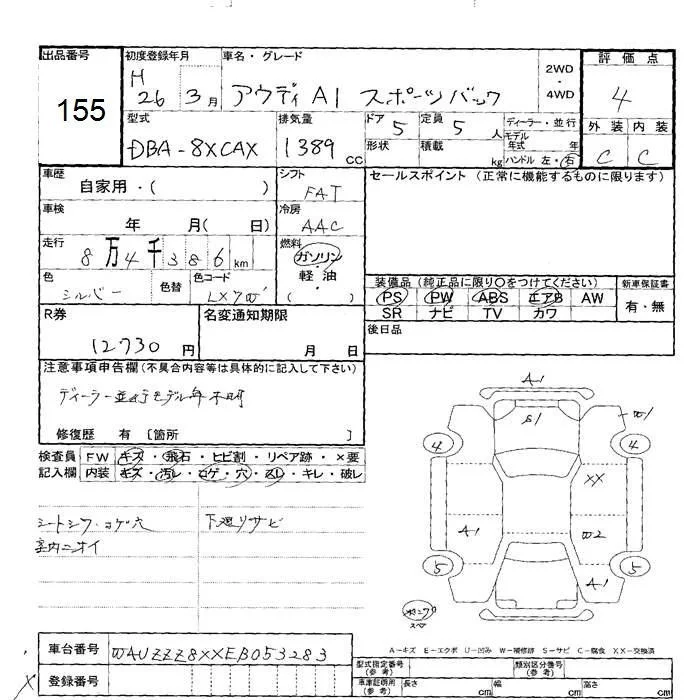 出品番号
155
初度登録年月
H 26 3月
車名・グレード
アウディA1 スポーツバック
2WD
・
4WD
評価点
4
外装 内装
C C
型式
DBA-8XCAX
排気量
1389 CC
ドア 5
定員 5 人
形状
積載 kg
ディーラー・並行
モデル年式 年
ハンドル 左・右
車歴
自家用・( )
シフト
FAT
車検
年 月( 日)
冷房
AAC
走行
8万4千386km
燃料
ガソリン
・
軽油
( )
色
シルバー
色替
色コード
LX7W
セールスポイント (正常に機能するものに限ります)
装備品 (純正品に限り○をつけてください)
PS PW ABS エアB AW
SR ナビ TV カワ
新車保証書
有・無
後日品
R券
12730円
名変通知期限
月 日
注意事項申告欄(不具合内容等は具体的に記入して下さい)
ディーラー並行モデル年不明
修復歴 有 [箇所 ]
検査員 FW キズ・飛石・ヒビ割・リペア跡・×要
記入欄 内装 キズ・汚レ・コゲ・穴・スレ・キレ・破レ
シートシワ・コゲ穴
室内ニオイ
下廻りサビ
A1
S1
W1
4 4
XX
A1
W2
5 5
A1
スペア
A-キズ E-エクボ U-凹み W-補修跡 S-サビ C-腐食 XX-交換済
車台番号
WAUZZZ8XXEB053283
登録番号
型式指定番号(参考)
類別区分番号(参考)
車庫証明用(参考) 長さ cm 幅 cm 高さ cm